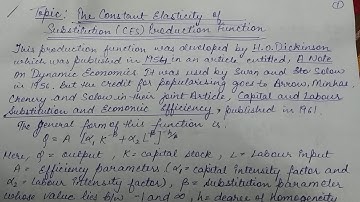 ①
Topic: The Constant Elasticity of
Substitution (CES) Production Function
This production function was developed by H.D. Dickinson
which was published in 1954 in an article entitled, A Note
On Dynamic Economics. It was used by Swan and Solow
in 1956. But the credit for popularising goes to Arrow, Minhas,
Chenery and Solow in their joint Article, Capital and Labour
Substitution and Economic Efficiency, published in 1961
The general form of this function is
Here, q = output, K = capital stock, L = Labour input
A = Efficiency parameter (α₁ = capital intensity factor and
α₂ = labour intensity factor), β = substitution parameter
whose value lies b/w -1 and ∞, h = degree of homogeneity